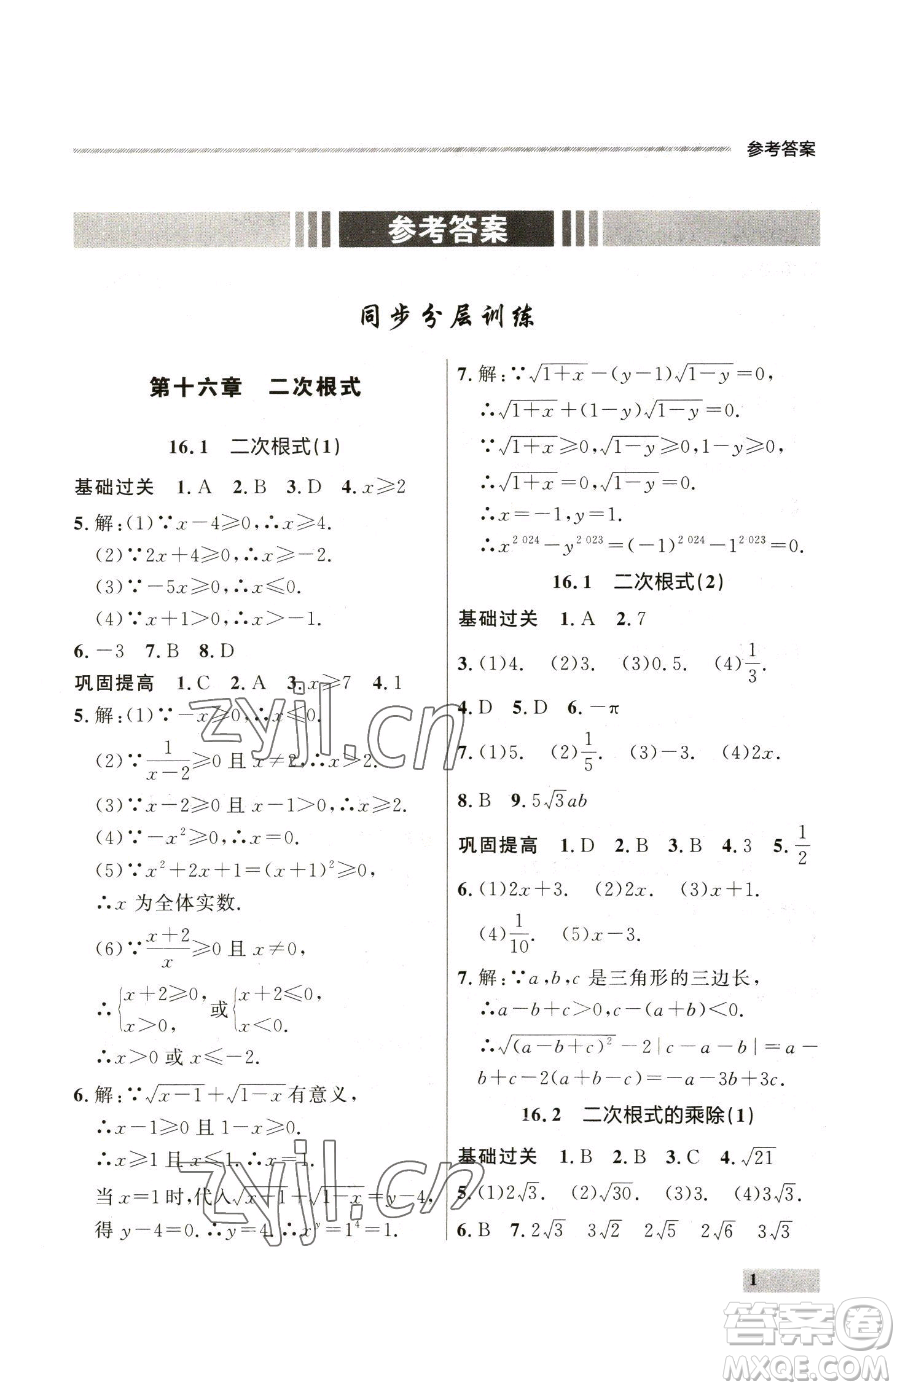 参考答案
参考答案
同步分层训练
第十六章 二次根式
16.1 二次根式(1)
基础过关 1.A 2.B 3.D 4.x≥2
5.解:(1)∵x-4≥0,∴x≥4.
(2)∵2x+4≥0,∴x≥-2.
(3)∵-5x≥0,∴x≤0.
(4)∵x+1>0,∴x>-1.
6.-3 7.B 8.D
巩固提高 1.C 2.A 3.x≥7 4.1
5.解:(1)∵-x≥0,∴x≤0.
(2)∵1/(x-2)≥0且x≠2,∴x>2.
(3)∵x-2≥0且x>0,∴x≥2.
(4)∵-x²≥0,∴x=0.
(5)∵x²+2x+1=(x+1)²≥0,
∴x为全体实数.
(6)∵(x+2)/x≥0且x≠0,
∴{x+2≥0, x>0, 或{x+2≤0, x<0.
∴x>0或x≤-2.
6.解:∵√(x-1)+√(1-x)有意义,
∴x-1≥0且1-x≥0.
∴x≥1且x≤1.∴x=1.
当x=1时,代入√(x-1)+√(1-x)=y-4,
得y-4=0.∴y=4.∴x^y=1⁴=1.
7.解:∵√(1+x)-(y-1)√(1-y)=0,
∴√(1+x)+(1-y)√(1-y)=0.
∵√(1+x)≥0,√(1-y)≥0,1-y≥0,
∴√(1+x)=0,√(1-y)=0.
∴x=-1,y=1.
∴x^2 024-y^2 023=(-1)^2 024-1^2 023=0.
16.1 二次根式(2)
基础过关 1.A 2.7
3.(1)4. (2)5. (3)0.5. (4)1/3.
4.D 5.D 6.-π
7.(1)5. (2)1/5. (3)-3. (4)2x.
8.B 9.5√3ab
巩固提高 1.D 2.B 3.B 4.3 5.1/2
6.(1)2x+3. (2)2x. (3)x+1.
(4)1/10. (5)x-3.
7.解:∵a,b,c是三角形的三边长,
∴a-b+c>0,c-(a+b)<0.
∴√((a-b+c)²)-2|c-a-b|=a-
b+c-2(a+b-c)=-a-3b+3c.
16.2 二次根式的乘除(1)
基础过关 1.B 2.B 3.C 4.√21
5.(1)2√3. (2)√30. (3)2. (4)3√3.
6.B 7.2√3 3√2 4√2 3√3
1
zyjl.cn
答案圈
MXQE.COM